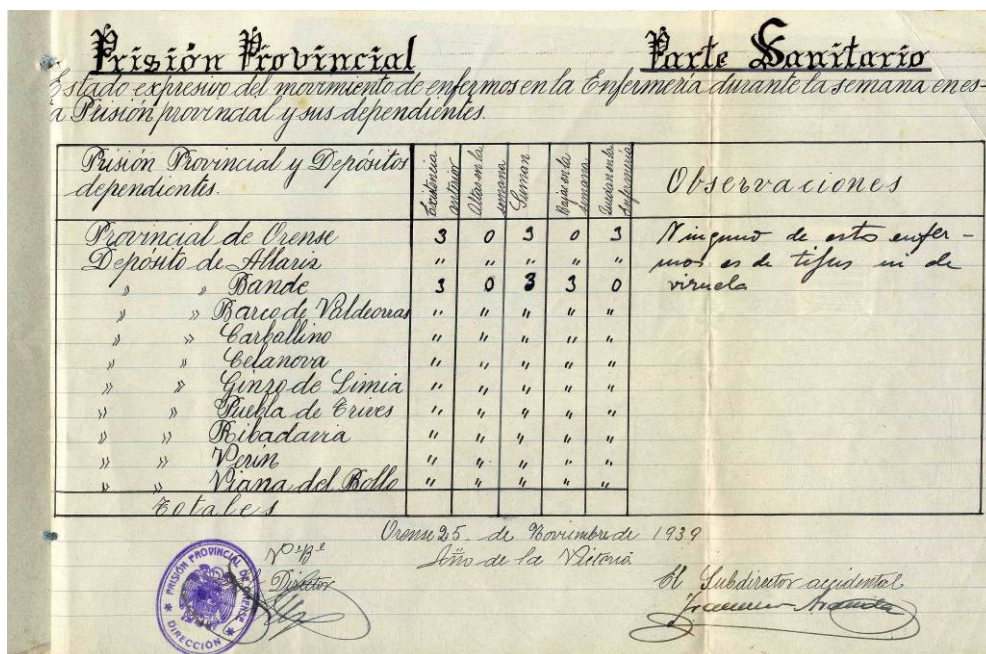 Prisión Provincial Parte Sanitario
Estado expresivo del movimiento de enfermos en la Enfermería durante la semana en es-
a Prisión provincial y sus dependientes.
Prisión Provincial y Depósitos dependientes. Existencia anterior Altas en la semana Suman Bajas en la semana Quedan en la Enfermería Observaciones
Provincial de Orense 3 0 3 0 3 Ninguno de estos enfer-
Depósito de Allariz " " " " " mos es de tifus ni de
» » Bande 3 0 3 3 0 viruela
» » Barco de Valdeorras " " " " "
» » Carballino " " " " "
» » Celanova " " " " "
» » Ginzo de Limia " " " " "
» » Puebla de Trives " " " " "
» » Ribadavia " " " " "
» » Verín " " " " "
» » Viana del Bollo " " " " "
Totales
Orense 25 de Noviembre de 1939
Año de la Victoria
Vº Bº
Director
El Subdirector accidental
PRISIÓN PROVINCIAL DE ORENSE
* DIRECCIÓN *